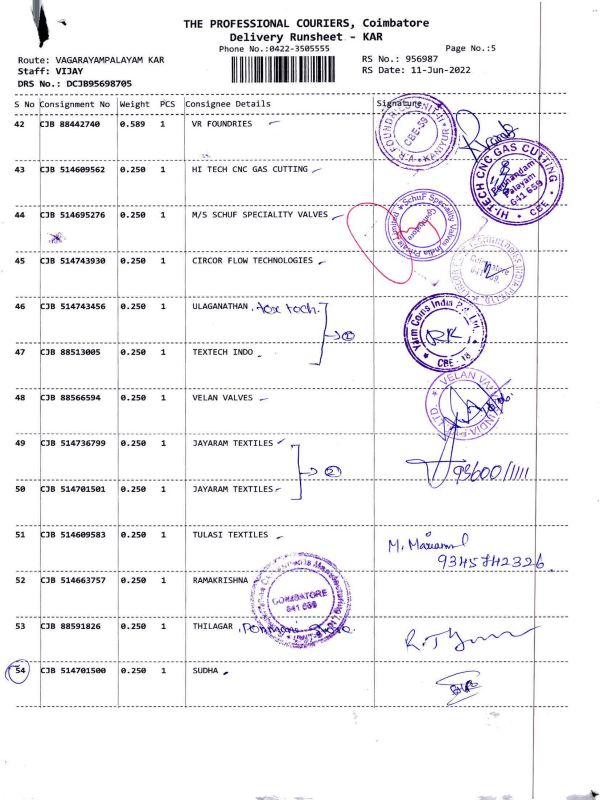 THE PROFESSIONAL COURIERS, Coimbatore
Delivery Runsheet - KAR
Phone No.:0422-3505555
Page No.:5
Route: VAGARAYAMPALAYAM KAR
RS No.: 956987
Staff: VIJAY
RS Date: 11-Jun-2022
DRS No.: DCJB95698705
S No Consignment No Weight PCS Consignee Details Signature
42 CJB 88442740 0.589 1 VR FOUNDRIES
CBE-59
KANIYUR
43 CJB 514609562 0.250 1 HI TECH CNC GAS CUTTING
HI-TECH CNC GAS CUTTING
Palayam
641 659
CBE
44 CJB 514695276 0.250 1 M/S SCHUF SPECIALITY VALVES
SchuF Speciality Valves India Private Limited
Coimbatore
45 CJB 514743930 0.250 1 CIRCOR FLOW TECHNOLOGIES
Coimbatore
46 CJB 514743456 0.250 1 ULAGANATHAN. tex tech.
①
Yarm Coms India Pvt. Ltd.
CBE - 18
47 CJB 88513005 0.250 1 TEXTECH INDO
48 CJB 88566594 0.250 1 VELAN VALVES
VELAN VALVES INDIA LTD.
49 CJB 514736799 0.250 1 JAYARAM TEXTILES
②
93600/1111
50 CJB 514701501 0.250 1 JAYARAM TEXTILES
51 CJB 514609583 0.250 1 TULASI TEXTILES
9345742326
52 CJB 514663757 0.250 1 RAMAKRISHNA
COIMBATORE
641 659
53 CJB 88591826 0.250 1 THILAGAR
54 CJB 514701500 0.250 1 SUDHA